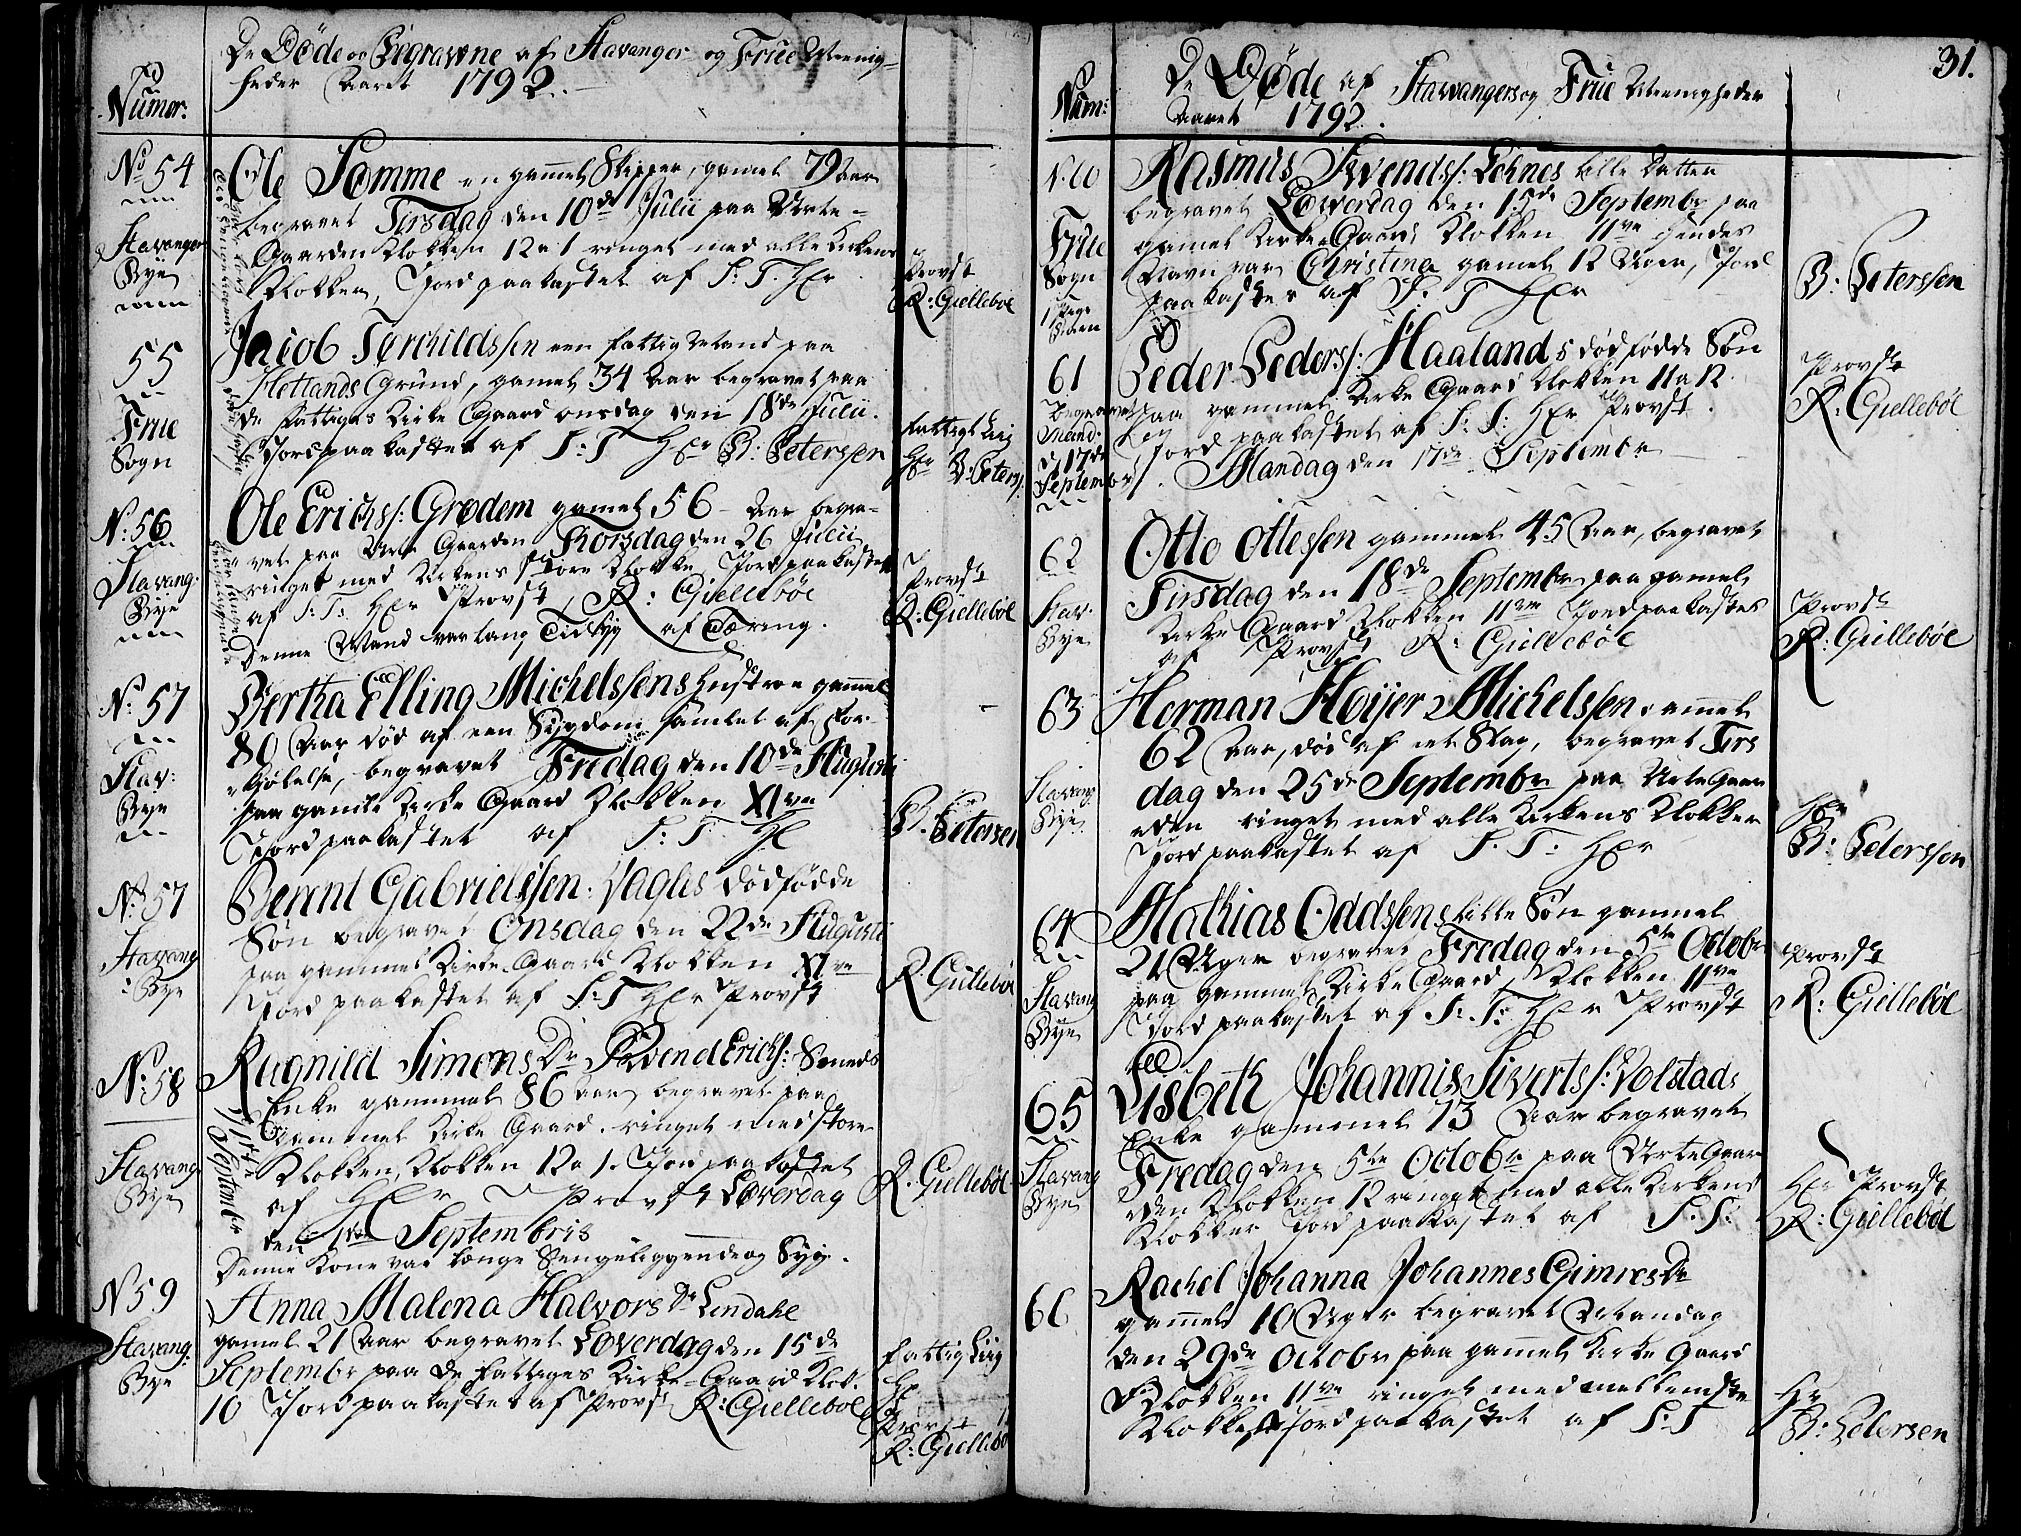 De Døde oc Begravne af Stavanger og Frue Meenig-
heder Aaret 1792.
Numer:
No 54
Stavanger
Bye
Ole Somme en gamel Skipper, gamel 79 Aar
begravet Tirsdag den 10de Julii paa Urte-
Gaarden Klokken 12 a 1 ringet med alle Kirkens
Klokker, Jord paakastet af S: T. Her
Provst
R: Gielleboe
55
Frue
Sogn
Jacob Torchildssen een fattig Mand paa
Hetlands Grund, gamel 34 Aar begravet paa
de Fattiges Kirke Gaard onsdag den 18de Julii.
Jord paakastet af S: T Her B: Peterssen
Fattigt Liig
Her B: Peters:
N: 56
Stavang:
Bye
Ole Erichs: Grødem gamel 56 Aar begra-
vet paa Urte Gaarden Torsdag den 26 Julii
ringet med Kirkens store Klokke Jord paakastet
af S: T: Her Provst R: Giellebøe
Denne Mand var lang Tid syg af Tæring.
Provst
R: Giellebøe
N: 57
Stav:
Bye
Bertha Elling Michelssens Hustroe gamel
80 Aar død af een Sygdom samlet af For-
kjølelse, begravet Fredag den 10de Augusti
paa gamle Kirke Gaard Klokken XI ve
Jord paakastet af S: T: H
B. Petersen
No 57
Stavang
Bye
Berent Gabrielssen Vagles dødfødde
Søn begravet Onsdag den 22de Augusti
paa gammel Kirke-Gaard Klokken XI ve
Jord paakastet af S: T Her Provst
R Giellebøe
N: 58
Stavang
Bye
Ragnild Simons Dr Svend Erichs: Soneds
Enke gammel 86 Aar begravet paa
gammel Kirke Gaard. ringet med store
Klokken, Klokken 12 a 1. Jord paakastet
af Her Provst Løverdag
den 1ste Septembris
Denne Kone var længe Sengeliggende og Syg.
R. Giellebøe
N 59
Stavang:
Bye
Anna Malena Halvors Dr Lendahl
gamel 21 Aar begravet Løverdag den 15de
Septembr paa de Fattiges Kirke-Gaard Klok.
10 Jord paakastet af Provst R: Gielleboe
Fattig Liig
H
Provst
R: Gielleboe
31.
Num:
De Døde af Stawanger og Frue Meenigheder
Aaret 1792.
Frue
Sogn
Rasmus Svends: Lohnes lille Datter
begravet Løverdag den 15de Septembr paa
gamel Kirke Gaard Klokken 11ve hendes
Navn var Christina gamel 12 Uger, Jord
paakastet af S: T Her
B: Peterssen
61
Begravet
Mand:
d 17de
Septembr
Peder Peders: Haalands dødfødde Søn
paa gammel Kirke Gaard Klokken 11 a 12.
Jord paakastet af S: T: Her Provst.
Mandag den 17de Septembr
Provst
R: Giellebøl
62
Stav:
Bye
Otto Ottessen gammel 45 Aar, begravet
Tirsdag den 18de Septembr paa gamel
Kirke Gaard Klokken 11ve Jord paakastet
af Provst R: Giellebøl
Provst
R: Giellebøl
63
Stavang
Bye
Herman Høijer Michelssen gammel
62 Aar, død af et Slag, begravet Tirs
dag den 25de Septembr paa Urte Gaar
den ringet med alle Kirkens Klokker
Jord paakastet af S. T: Her
Her
B: Peterssen
64
Stavang
Bye
Mathias Oddssens lille Søn gammel
21 Uger begravet Fredag den 5te Octobr
paa gammel Kirke Gaard Klokken 11ve
Jord paakastet af S: T: Her Provst
Provst
R: Giellebøl
65
Stavang
Bye
Lisbeth Johannis Siverts: Volstads
Enke gammel 73 Aar begravet
Fredag den 5te Octobr paa Urte Gaar
den Klokken 12 ringet med alle Kirkens
Klokker Jord paakastet af S. T:
Her Provst
R: Giellebøl
66
Rachel Johanna Johannes Gimres Dr
gammel 10 Uger begravet Mandag
den 29de Octobr paa gamel Kirke Gaard
Klokken 11ve ringet med mellemste
Klokke Jord paakastet af S: T
Hr
B: Petersen